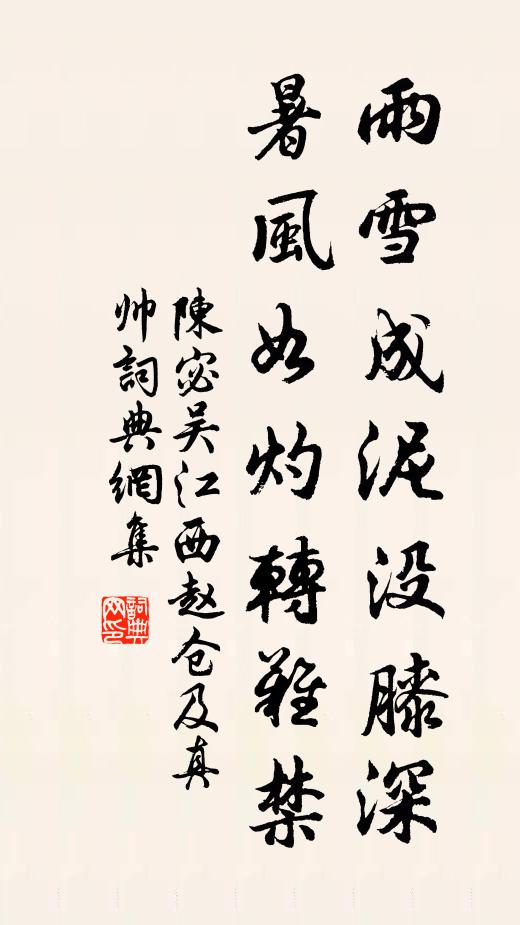 雨雪成泥没膝深
暑風如灼轉難禁
陳宓吴江西赵仓及真
帅詞典網集
詞典
网印